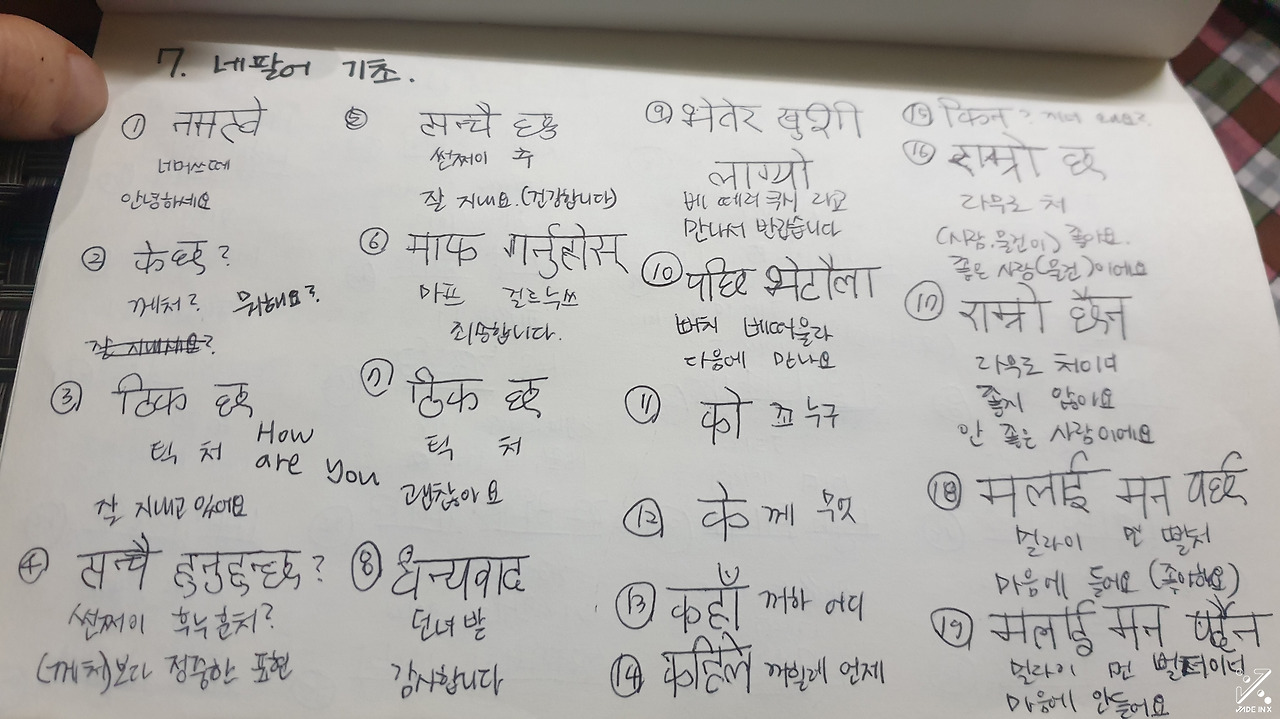 7. 네팔어 기초.
① नमस्ते
너머쓰떼
안녕하세요
② के छ ?
께처? 뭐해요?
잘 지내세요?
③ ठिक छ
틱 처 How are you
잘 지내고 있어요
④ सन्चै हुनुहुन्छ ?
썬쩌이 후누훈처?
(께처)보다 정중한 표현
⑤ सन्चै छु
썬쩌이 추
잘 지내요.(건강합니다)
⑥ माफ गर्नुहोस्
마프 걸르누쓰
죄송합니다.
⑦ ठिक छ
틱 처
괜찮아요
⑧ धन्यवाद
던녀받
감사합니다
⑨ भेतेर खुशी
लाग्यो
베 떼러 쿠시 라교
만나서 반갑습니다
⑩ पछि भेटौला
뻐치 베떠울라
다음에 만나요
⑪ को 꼬 누구
⑫ के 께 무엇
⑬ कहाँ 꺼하 어디
⑭ कहिले 꺼힐레 언제
⑮ किन ?
⑯ राम्रो छ
라무로 처
(사람.물건이) 좋아요.
좋은 사람(물건)이에요
⑰ राम्रो छैन
라무로 처이너
좋지 않아요
안 좋은 사람이에요
⑱ मलाई मन पर्छ
멀라이 먼 뻘처
마음에 들어요 (좋아해요)
⑲ मलाई मन पर्दैन
멀라이 먼
마음에 안들어요
JADE IN X